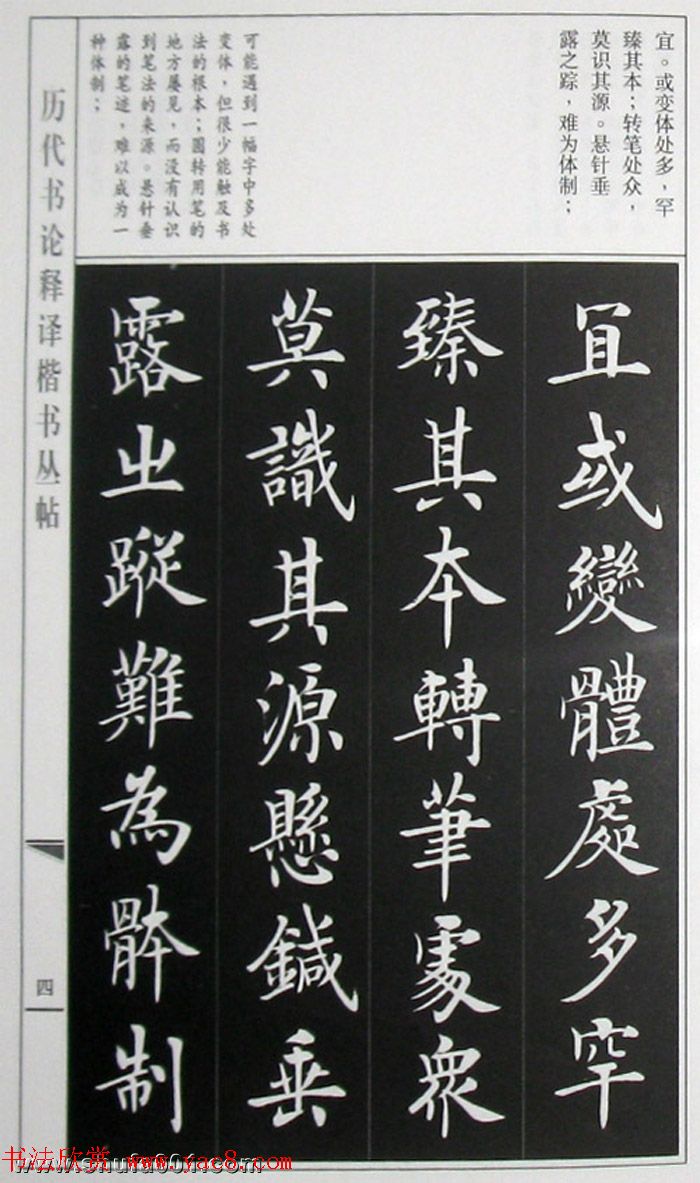 宜。或变体处多，罕
臻其本；转笔处众，
莫识其源。悬针垂
露之踪，难为体制；
可能遇到一幅字中多处
变体，但很少能触及书
法的根本；圆转用笔的
地方屡见，而没有认识
到笔法的来源。悬针垂
露的笔迹，难以成为一
种体制；
历代书论释译楷书丛帖
宜或變體處多罕
臻其本轉筆處眾
莫識其源懸鍼垂
露之蹤難為骵制
四
书法欣赏 www.yac8.com